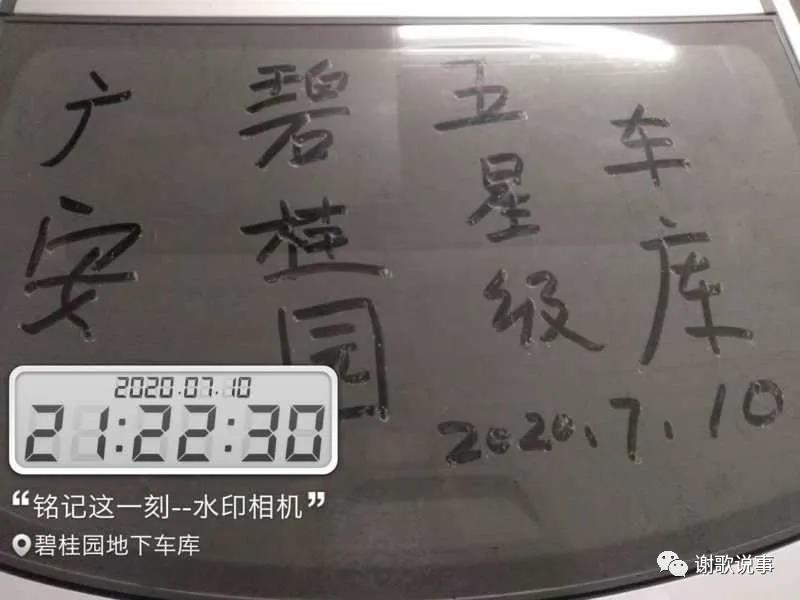 广安
碧桂园
五星级
车库
2020.7.10
2020.07.10
21:22:30
“铭记这一刻--水印相机”
碧桂园地下车库
谢歌说事